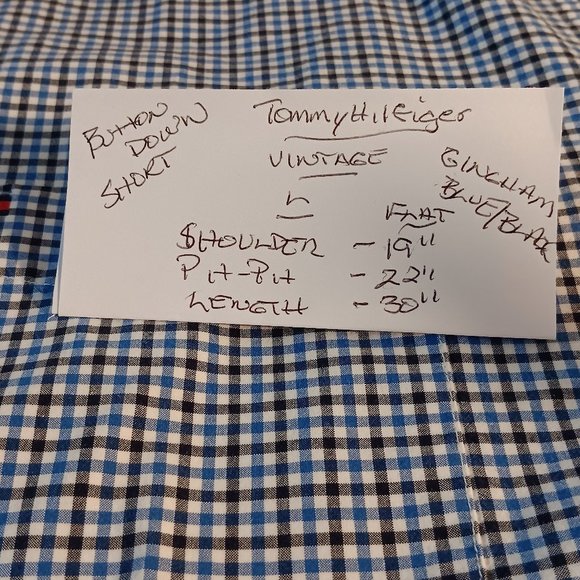 BUTTON
DOWN
SHORT
Tommy Hilfiger
VINTAGE
L
GINGHAM
BLUE/BLACK
FLAT
SHOULDER - 19"
Pit-Pit - 22"
LENGTH - 30"